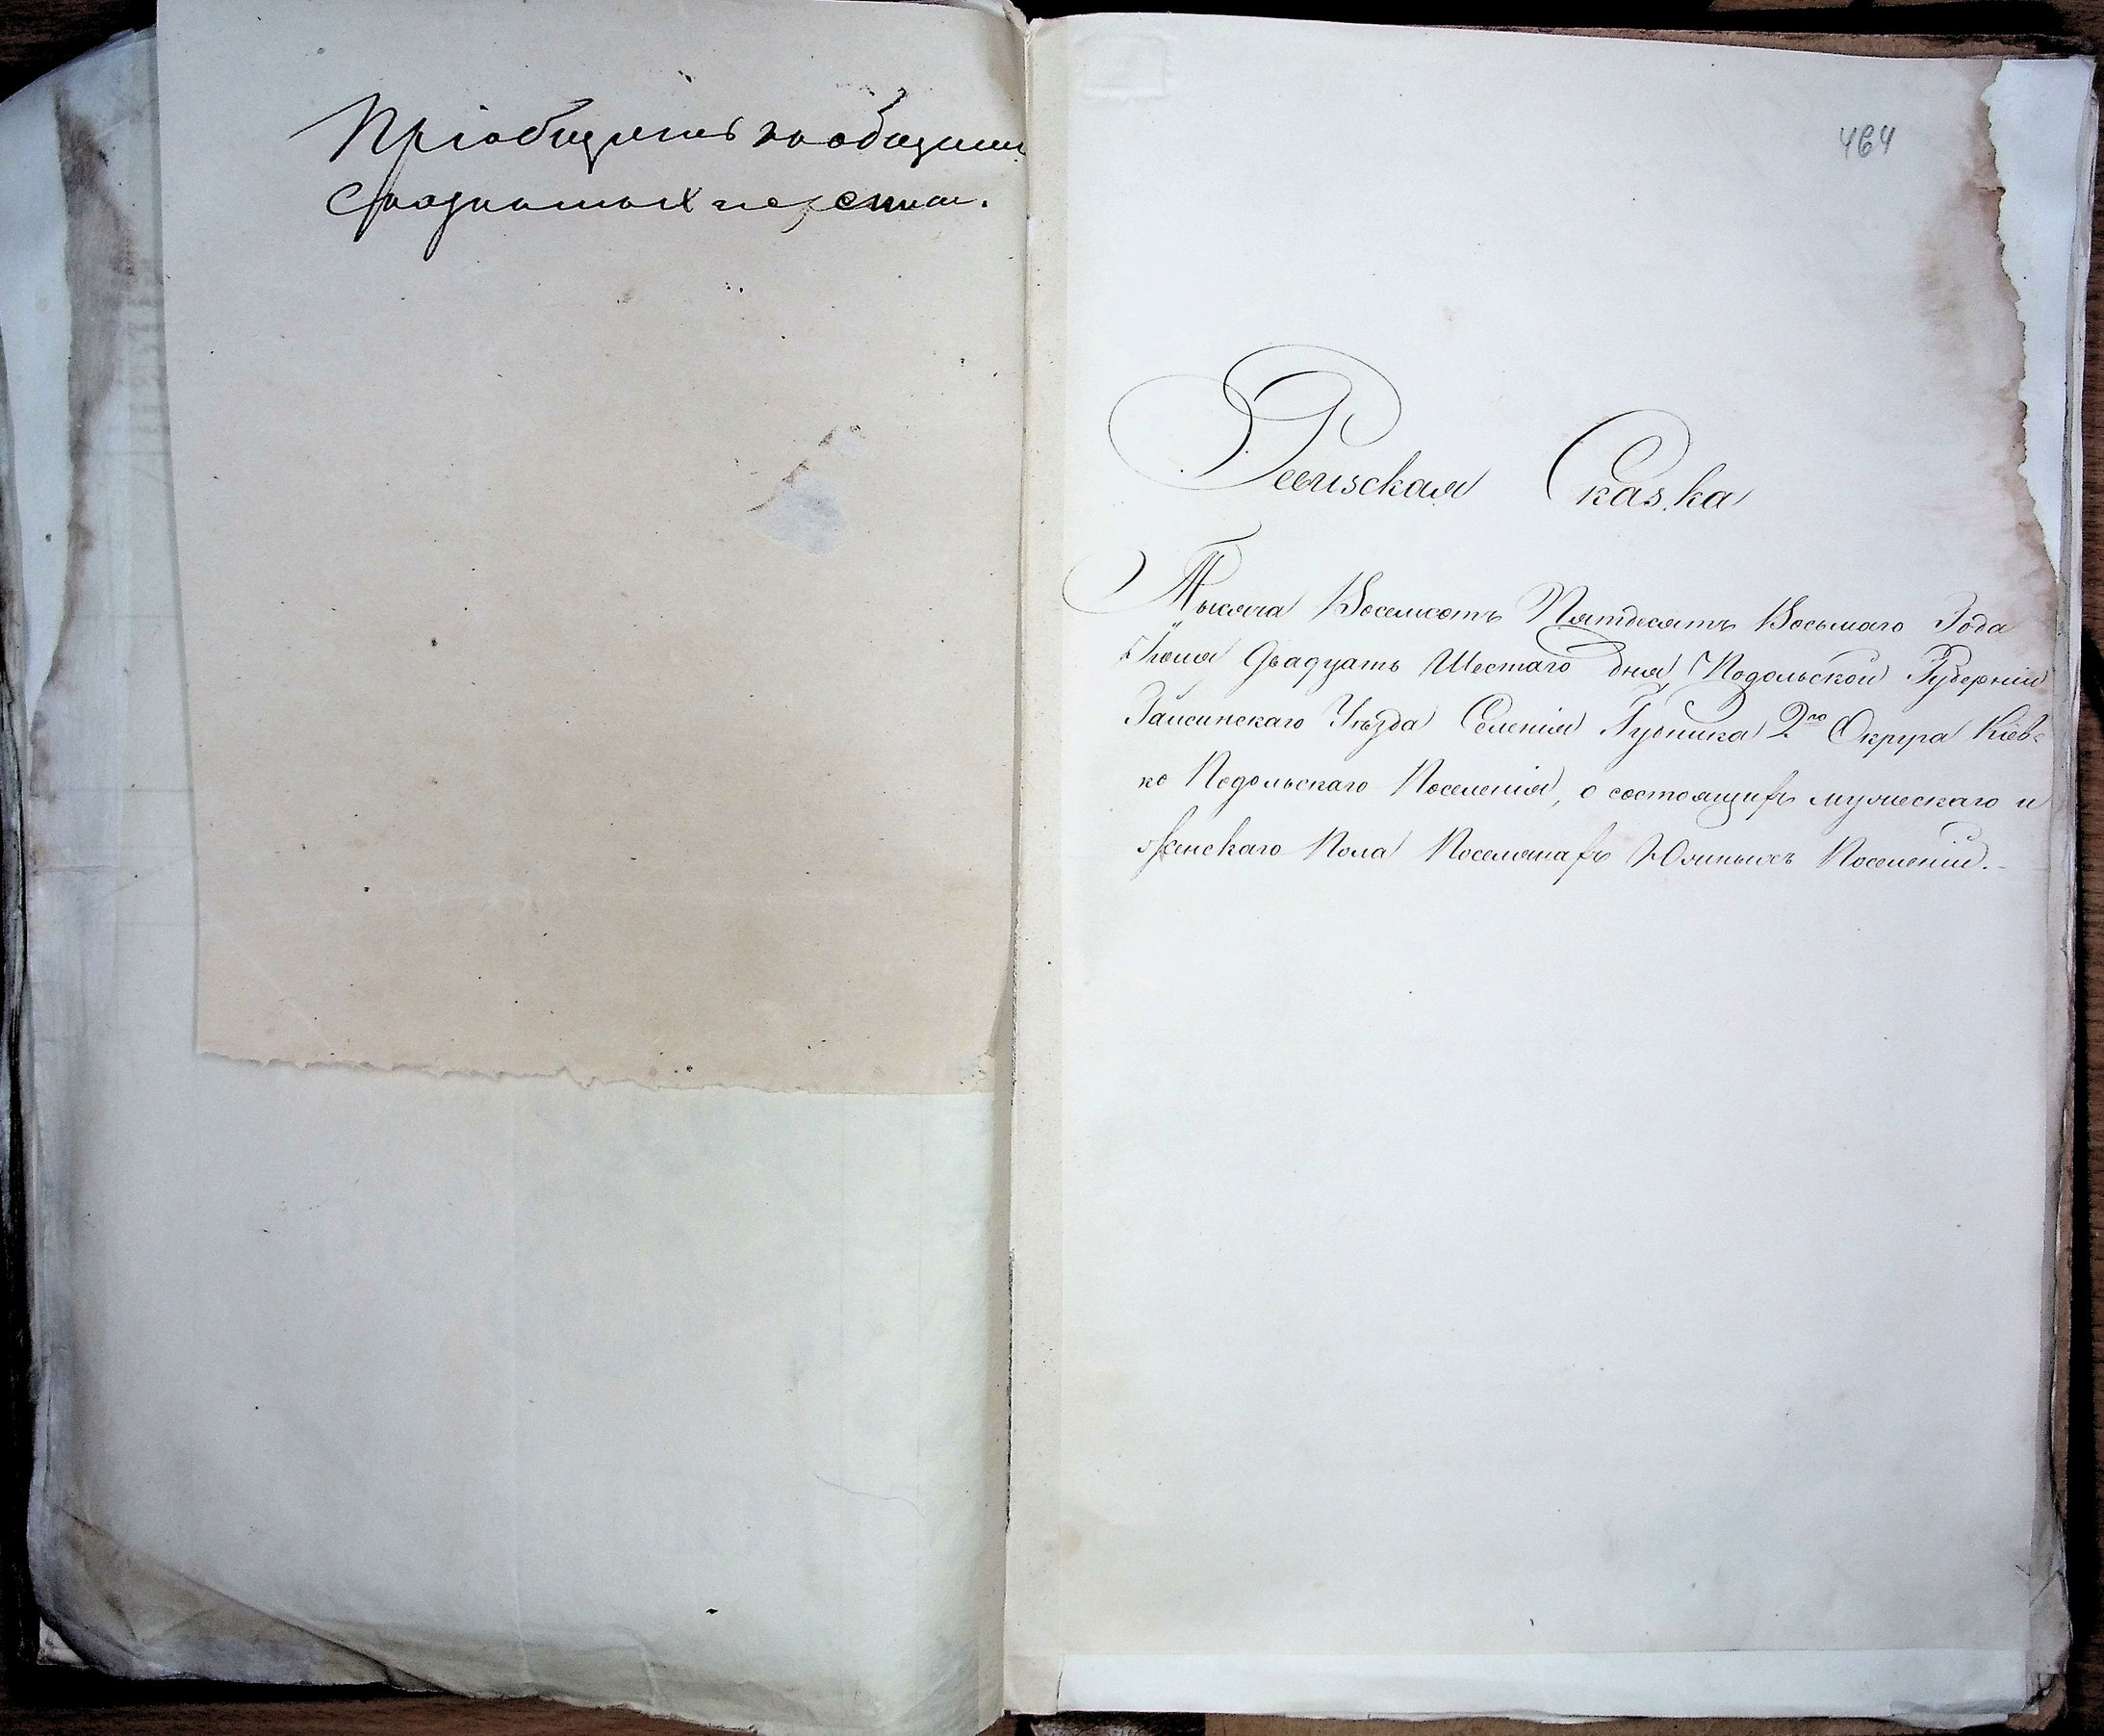 Пріобщить къ общимъ
464
Ревизская Сказка
Тысяча Восемсотъ Пятдесятъ Восьмаго Года
Іюня двадцать Шестаго дня Подольской Губерніи
Гайсинскаго Уѣзда Селенія Губника 2го Округа Кіев-
ко Подольскаго Поселенія, о состоящихъ мужескаго и
женскаго Пола Поселянахъ Южныхъ Поселеній.